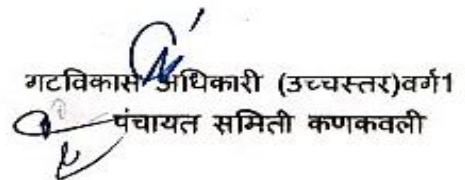 गटविकास अधिकारी (उच्चस्तर)वर्ग1
पंचायत समिती कणकवली